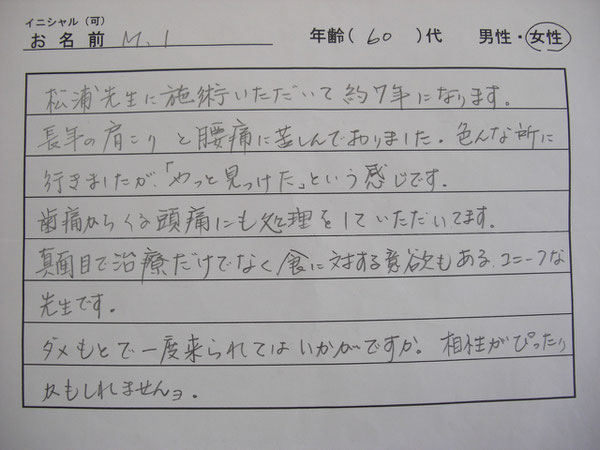 イニシャル（可）
お名前 M.I 年齢（ 60 ）代 男性・女性
松浦先生に施術いただいて約7年になります。
長年の肩こりと腰痛に苦しんでおりました。色んな所に
行きましたが、「やっと見つけた」という感じです。
歯痛からくる頭痛にも処理をしていただいてます。
真面目で治療だけでなく食に対する意欲もある、ユニークな
先生です。
ダメもとで一度来られてはいかがですか。相性がぴったり
かもしれませんョ。